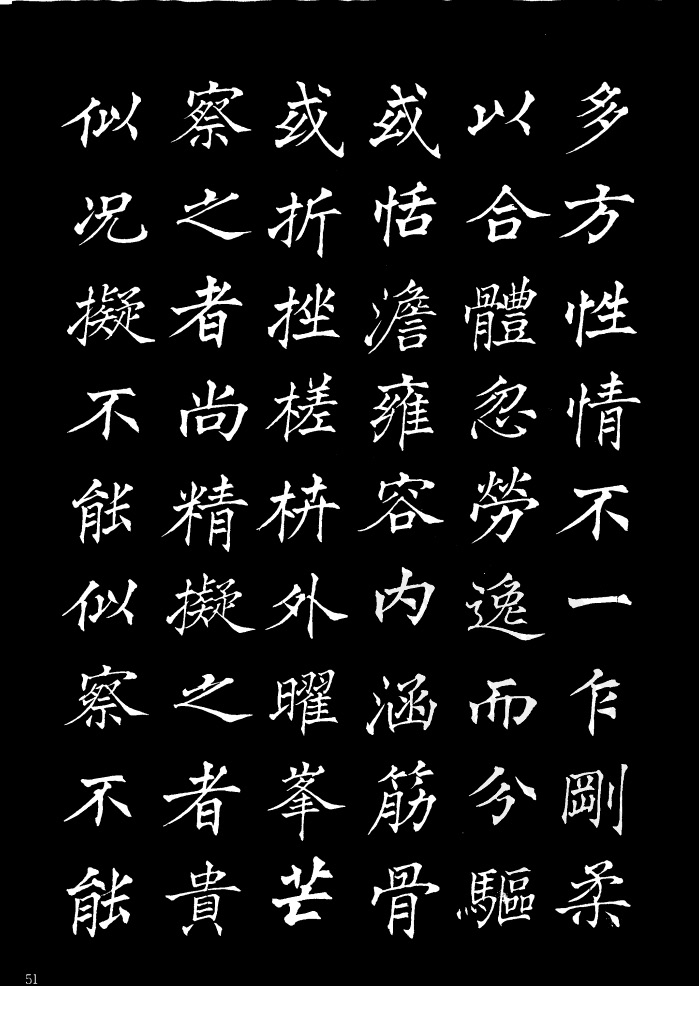 多方性情不一乍剛柔
以合體忽勞逸而分驅
或恬澹雍容内涵筋骨
或折挫槎枿外曜峯芒
察之者尚精擬之者貴
似况擬不能似察不能
51